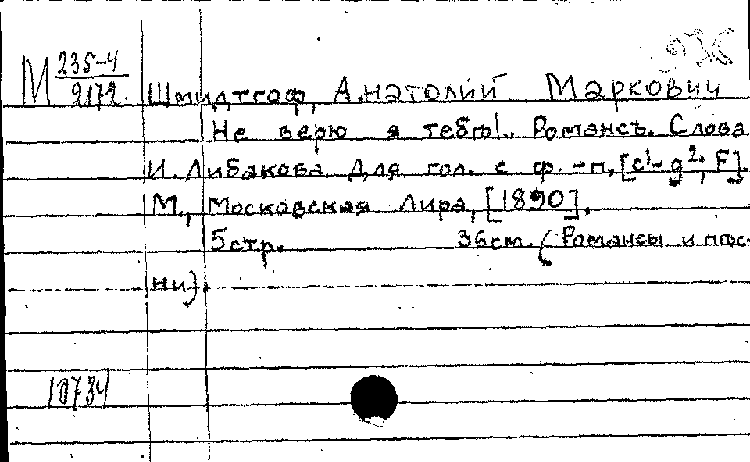 М 235-4
2172
Шмидтгоф, Анатолий Маркович
Не верю я тебѣ!.. Романсъ. Слова
И. Либакова для гол. с ф.-п, [c¹-g², F]
М., Московская Лира, [1890].
5 стр. 36 cm. (Романсы и пѣс-
ни).
10734